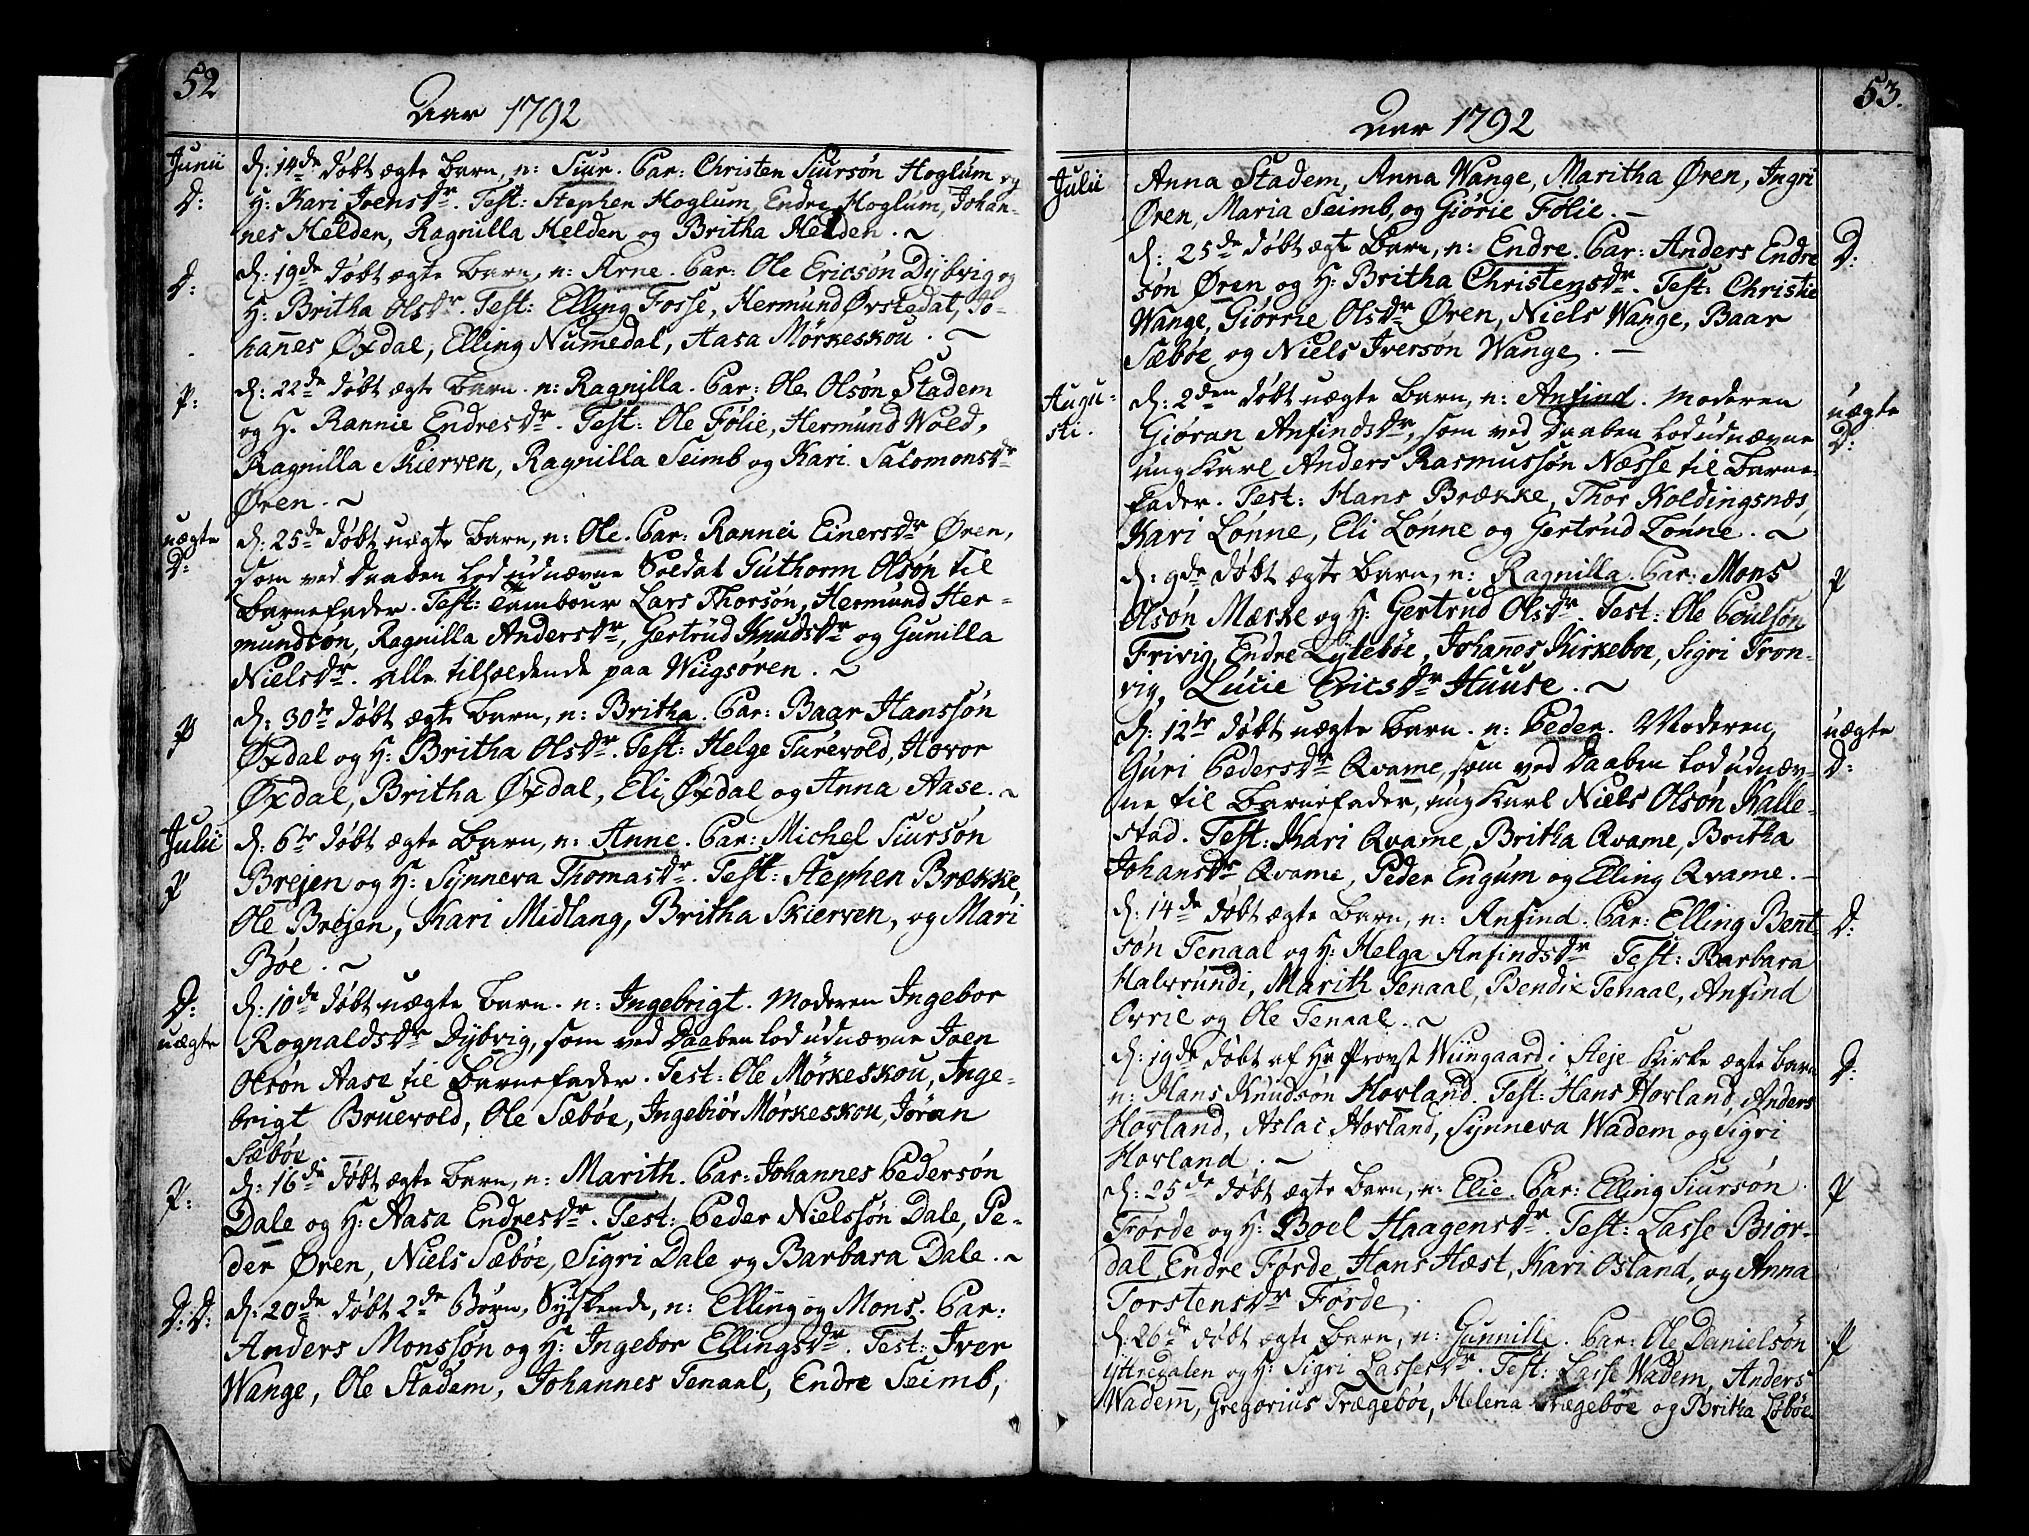 52
Aar 1792
Junii d: 14de døbt ægte Barn, n: Siur. Par: Christen Siursøn Hoglum og
D: H: Kari Joensdr. Test: Stephen Hoglum, Endre Hoglum, Johan-
nes Helden, Ragnilla Helden og Britha Helden. ~
d: 19de døbt ægte Barn, n: Arne. Par: Ole Ericsøn Dybvig og
D: H: Britha Olsdr. Test: Elling Fosse, Hermund Ørstedat, Jo-
hannes Øxdal, Elling Nummedal, Aasa Mørkeskou. ~
P: d: 22de døbt ægte Barn. n: Ragnilla. Par: Ole Olsøn Stadem
og H. Rannie Endresdr. Test: Ole Folie, Hermund Wold,
Ragnilla Skierven, Ragnilla Seimb og Kari Salomonsdr
Øren. ~
uægte d: 25de døbt uægte Barn, n: Ole. Par: Rannei Einersdr Øren,
D: som ved Daaben lod udnævne Soldat Guthorm Olsøn til
Barnefader. Test: Tambour Lars Thorsøn, Hermund Her-
mundsøn, Ragnilla Andersdr, Gertrud Knudsdr og Gunilla
Nielsdr. Alle tilholdende paa Wiigsøren. ~
P d: 30te døbt ægte Barn, n: Britha. Par: Baar Hanssøn
Øxdal og H: Britha Olsdr. Test: Helge Turevold, Hovor
Øxdal, Britha Øxdal, Eli Øxdal og Anna Aase. ~
Julii d: 6te døbt ægte Barn, n: Anne. Par: Michel Siursøn
P Brejen og H: Synneva Thomasdr. Test: Stephen Brække,
Ole Brejen, Kari Midlang, Britha Skierven, og Mari
Bøe. ~
D: d: 10de døbt uægte Barn. n: Ingebrigt. Moderen Ingebor
uægte Rognaldsdr Dybvig, som ved Daaben lod udnævne Joen
Olsøn Aase til Barnefader. Test: Ole Mørkeskou, Inge-
brigt Bruevold, Ole Sæbøe, Ingebiør Mørkeskou, Jøran
Sæbøe. —
P: d: 16de døbt ægte Barn, n: Marith. Par: Johannes Pedersøn
Dale og H: Aasa Endresdr. Test: Peder Nielssøn Dale, Pe-
der Øren, Niels Sæbøe, Sigri Dale og Barbara Dale. ~
D: D: d: 20de døbt 2de Børn, Sydskende, n: Elling og Mons. Par:
Anders Monssøn og H: Ingebor Ellingsdr. Test: Iver
Wange, Ole Stadem, Johannes Tenaal, Endre Seimb,
53.
Aar 1792
Julii Anna Stadem, Anna Wange, Maritha Øren, Ingri
Øren, Maria Seimb, og Giørie Folie. —
d: 25de døbt ægte Barn, n: Endre. Par: Anders Endre D:
søn Øren og H: Britha Christensdr. Test: Christie
Wange, Giørrie Olsdr Øren, Niels Wange, Baar
Sæbøe og Niels Iversøn Wange. —
Augu- d: 2den døbt uægte Barn, n: Anfind. Moderen uægte
sti. Giøran Anfindsdr, som ved Daaben lod udnævne D:
ung Karl Anders Rasmussøn Næsse til Barne-
fader. Test: Hans Brække, Thor Koldingsnæs,
Kari Lønne, Eli Lønne og Gertrud Lønne. ~
d: 9de døbt ægte Barn, n: Ragnilla. Par: Mons P
Olsøn Mærke og H: Gertrud Olsdr. Test: Ole Poulsøn
Frivig, Endre Lytebøe, Johannes Kirkeboe, Sigri Tron-
vig, Lucie Ericsdr Huuse. ~
d: 12te døbt uægte Barn. n: Peder. Moderen, uægte
Guri Pedersdr Qvame, som ved Daaben lod udnæv- D:
ne til Barnefader, ung Karl Niels Olsøn Kalle-
stad. Test: Kari Qvame, Britha Qvame, Britha
Johansdr Qvame, Peder Engum og Elling Qvame. —
d: 14de døbt ægte Barn, n: Anfind. Par: Elling Bent- D:
søn Tenaal og H: Helga Anfindsdr Test: Barbara
Halvrundi, Marith Tenaal, Bendix Tenaal, Anfind
Orril og Ole Tenaal. ~
d: 19de døbt af Hr Provst Wiingaard i Steje Kirke ægte Barn D:
n: Hans Knudsøn Hovland. Test: Hans Hovland, Anders
Hovland, Aslac Hovland, Synneva Wadem og Sigri
Hovland. ~
d: 25de døbt ægte Barn, n: Elie. Par: Elling Siursøn P
Førde og H: Boel Haagensdr. Test: Lasse Bior-
dal, Endre Førde, Hans Hæst, Kari Osland, og Anna
Torstensdr Førde.
d: 26de døbt ægte Barn, n: Gunnill. Par: Ole Danielsøn P
Yttredalen og H: Sigri Lassesdr. Test: Lasse Wadem, Anders
Wadem, Gregorius Trægebøe, Helena Trægebøe og Britha Løbøe.